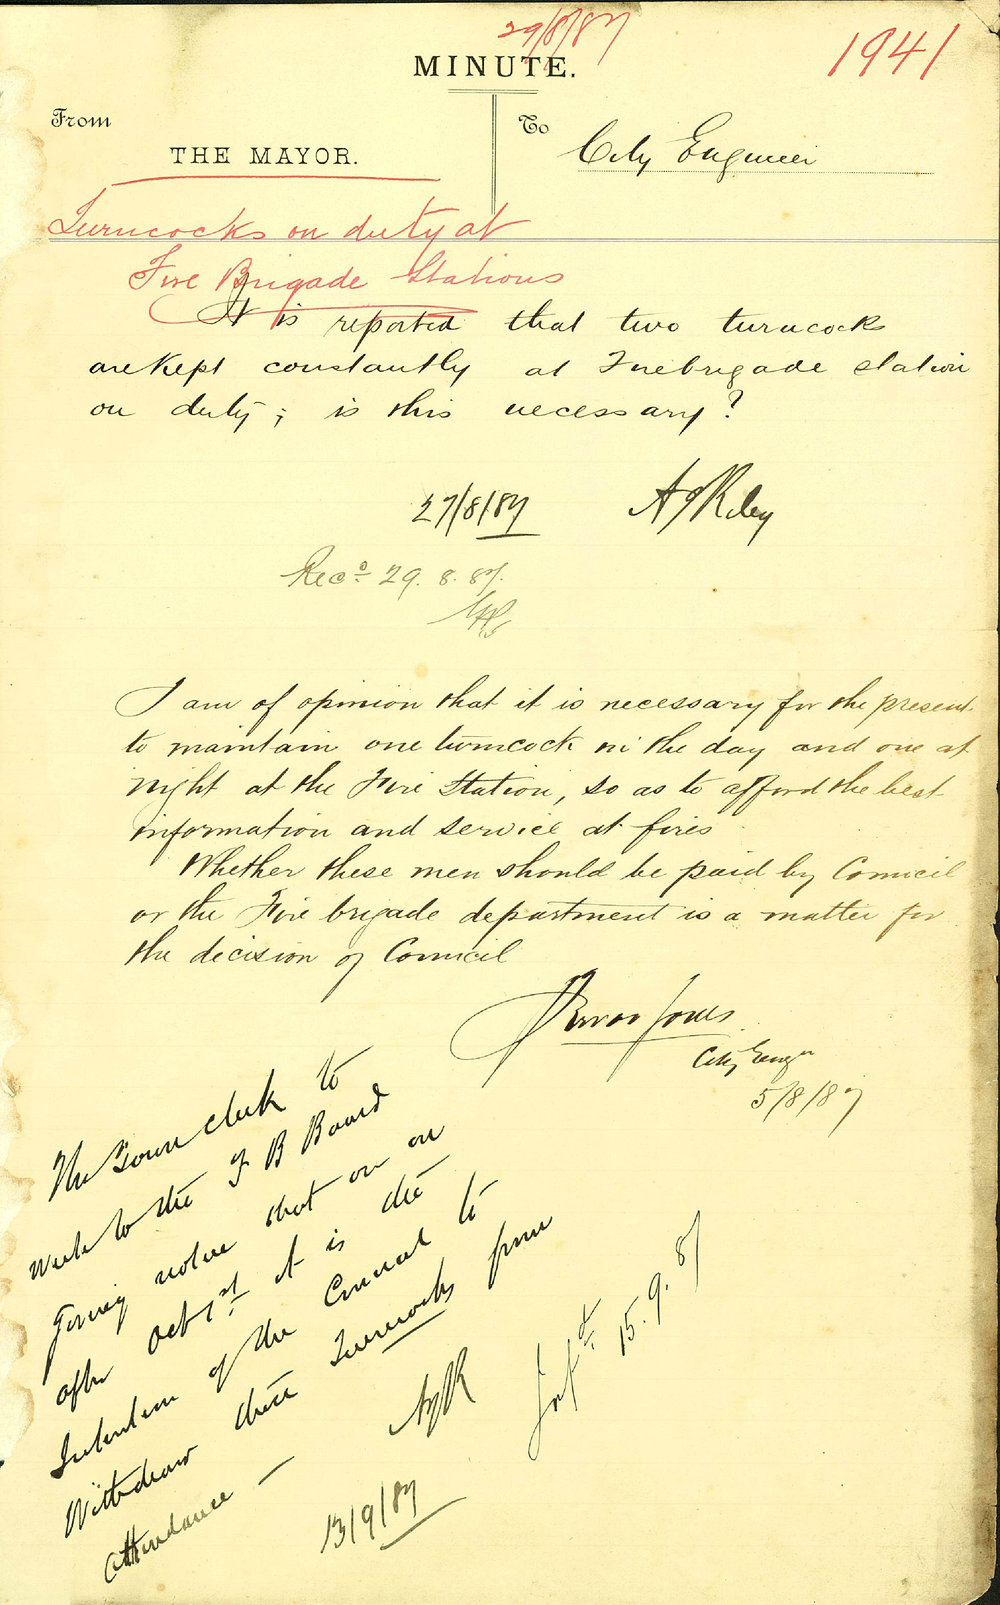 29/8/87
1941
MINUTE.
From
THE MAYOR.
To
City Engineer
Turncocks on duty at
Fire Brigade Stations
It is reported that two turncocks
are kept constantly at Firebrigade station
on duty; is this necessary?
27/8/87
Recd 29. 8. 87.
I am of opinion that it is necessary for the present
to maintain one turncock in the day and one at
night at the Fire Station, so as to afford the best
information and service at fires
Whether these men should be paid by Council
or the Fire brigade department is a matter for
the decision of Council
City Engr
5/8/87
The Town clerk to
write to the F B Board
giving notice that on or
after Oct 1st, it is the
Intention of the Council to
Withdraw these Turncocks from
attendance —
13/9/87
15. 9. 87